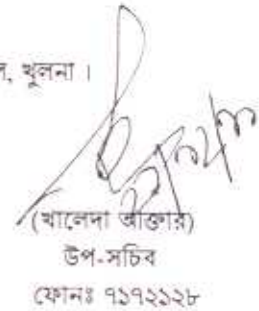 খুলনা।
(খালেদা আক্তার)
উপ-সচিব
ফোনঃ ৭১৭২১২৮